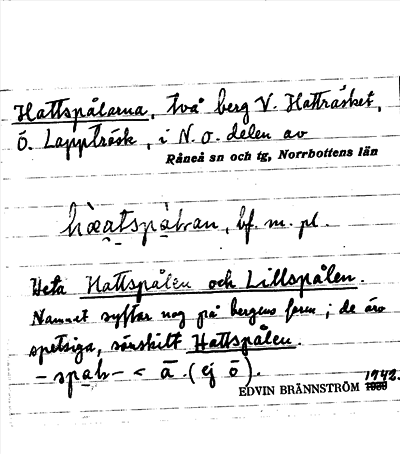 Hattspålarna, två berg V. Hatträsket,
Ö. Lappträsk, i N. o. delen av
Råneå sn och tg, Norrbottens län
bf. m. pl.
Heta Hattspålen och Lillspålen.
Namnet syftar nog på bergens form; de äro
spetsiga, särskilt Hattspålen.
- < ā (ej ō).
EDVIN BRÄNNSTRÖM 1942.